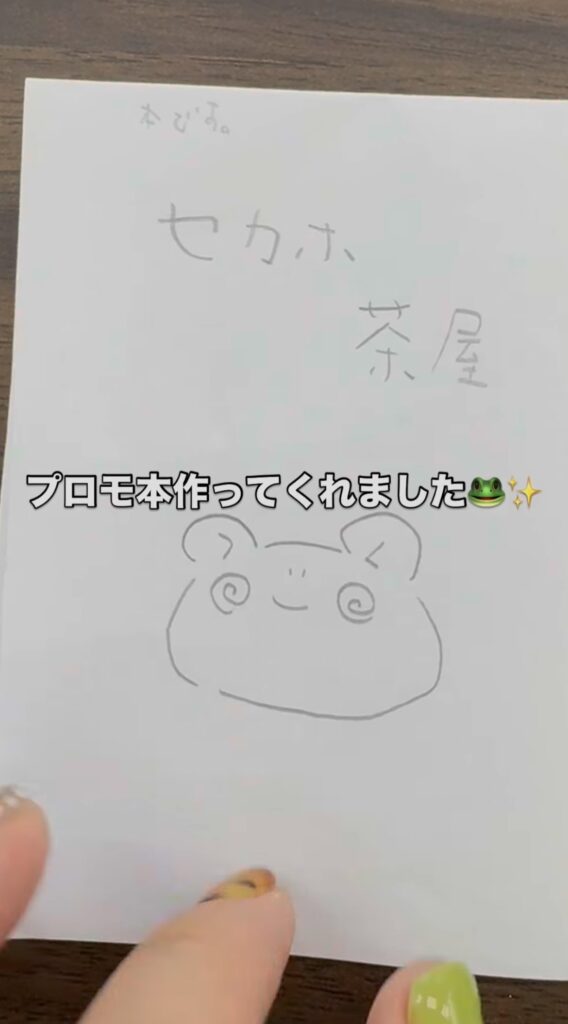 本です。
セカホ
茶屋
プロモ本作ってくれました🐸✨